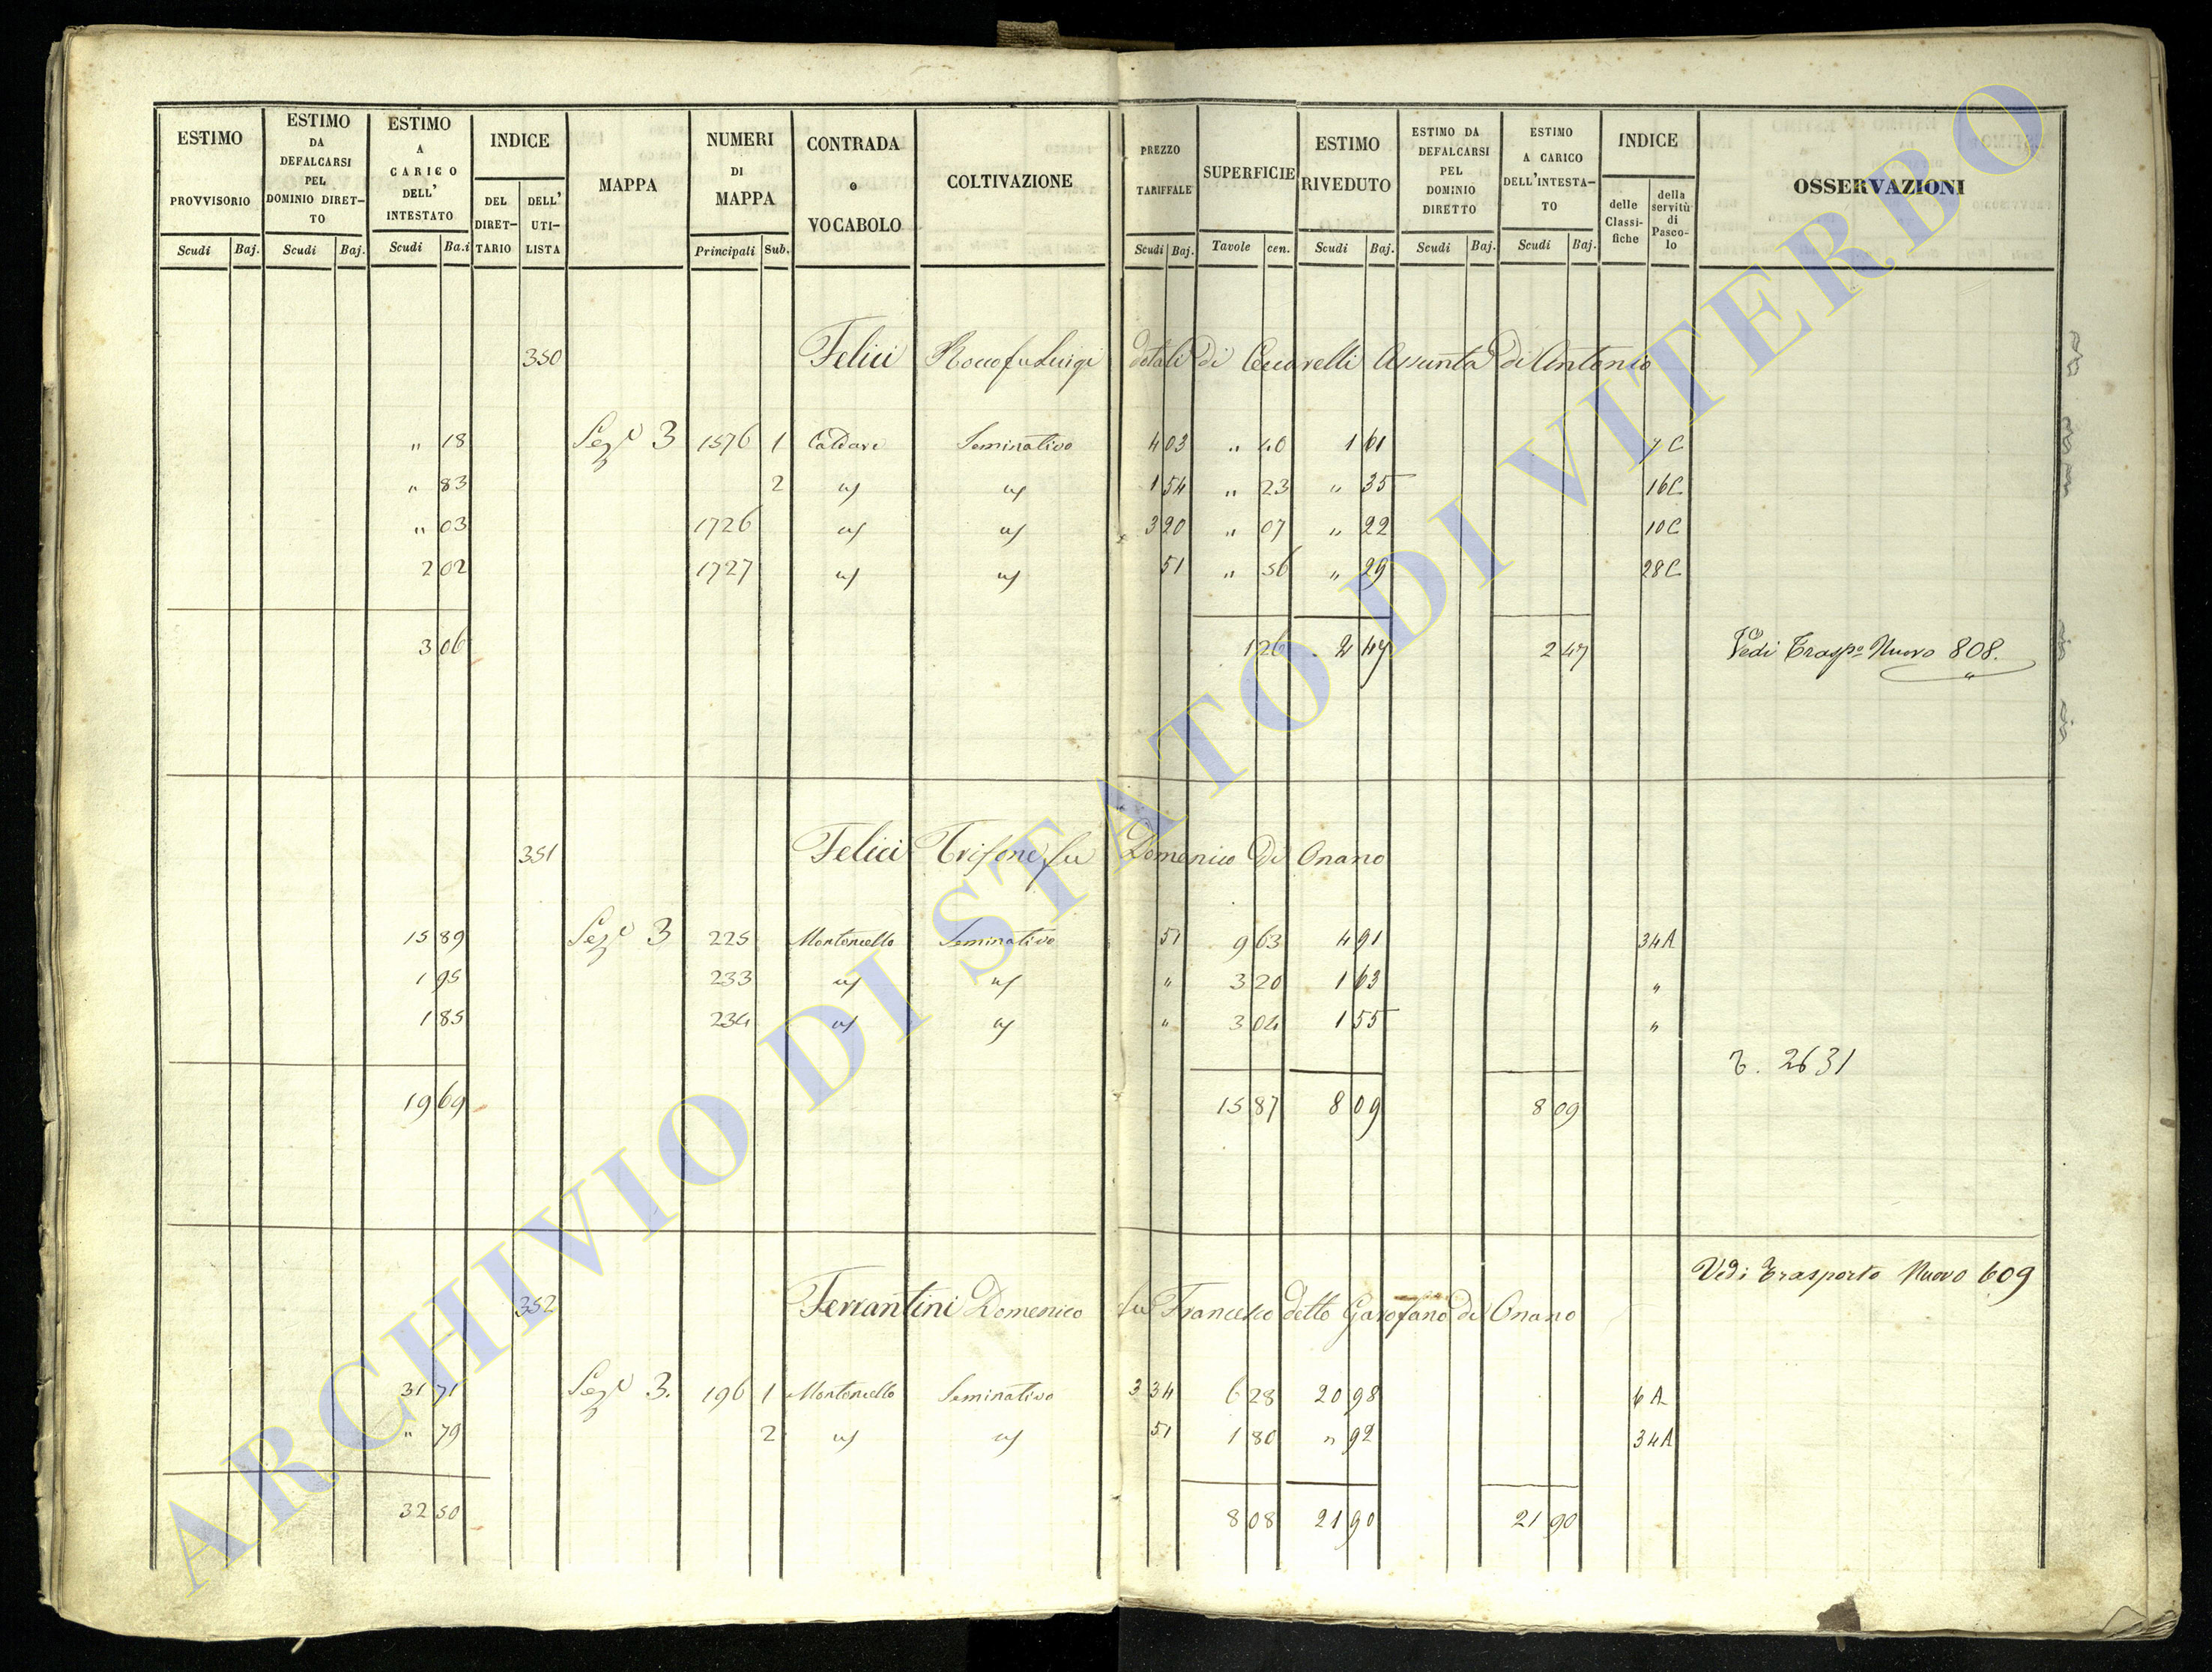 ESTIMO PROVVISORIO
Scudi Baj.
ESTIMO DA DEFALCARSI PEL DOMINIO DIRET-TO
Scudi Baj.
ESTIMO A CARICO DELL' INTESTATO
Scudi Ba.i
INDICE
DEL DIRET-TARIO
DELL' UTI-LISTA
MAPPA
NUMERI DI MAPPA
Principali Sub.
CONTRADA o VOCABOLO
COLTIVAZIONE
PREZZO TARIFFALE
Scudi Baj.
SUPERFICIE
Tavole cen.
ESTIMO RIVEDUTO
Scudi Baj.
ESTIMO DA DEFALCARSI PEL DOMINIO DIRETTO
Scudi Baj.
ESTIMO A CARICO DELL'INTESTA-TO
Scudi Baj.
INDICE
delle Classi-fiche
della servitù di Pasco-lo
OSSERVAZIONI
350 Felici Rocco fu Luigi dotali di Ceccarelli Assunta di Antonio
" 18 Sez.e 3 1576 1 Caldare Seminativo 4 03 " 40 1 61 7 C
" 83 2 " " 1 54 " 23 " 35 16 C
" 03 1726 " " 3 20 " 07 " 22 10 C
2 02 1727 " " 51 " 56 " 29 28 C
3 06 1 26 2 47 2 47 Vedi Trasp.o Nuovo 808.
351 Felici Trifone fu Domenico di Onano
15 89 Sez.e 3 225 Montoncello Seminativo 51 9 63 4 91 34 A
1 95 233 " " " 3 20 1 63 "
1 85 234 " " " 3 04 1 55 "
T. 2631
19 69 15 87 8 09 8 09
Vedi Trasporto Nuovo 609
352 Ferrantini Domenico fu Francesco detto Garofano di Onano
31 71 Sez.e 3. 196 1 Montoncello Seminativo 3 34 6 28 20 98 6 A
" 79 2 " " 51 1 80 " 92 34 A
32 50 8 08 21 90 21 90
ARCHIVIO DI STATO DI VITERBO